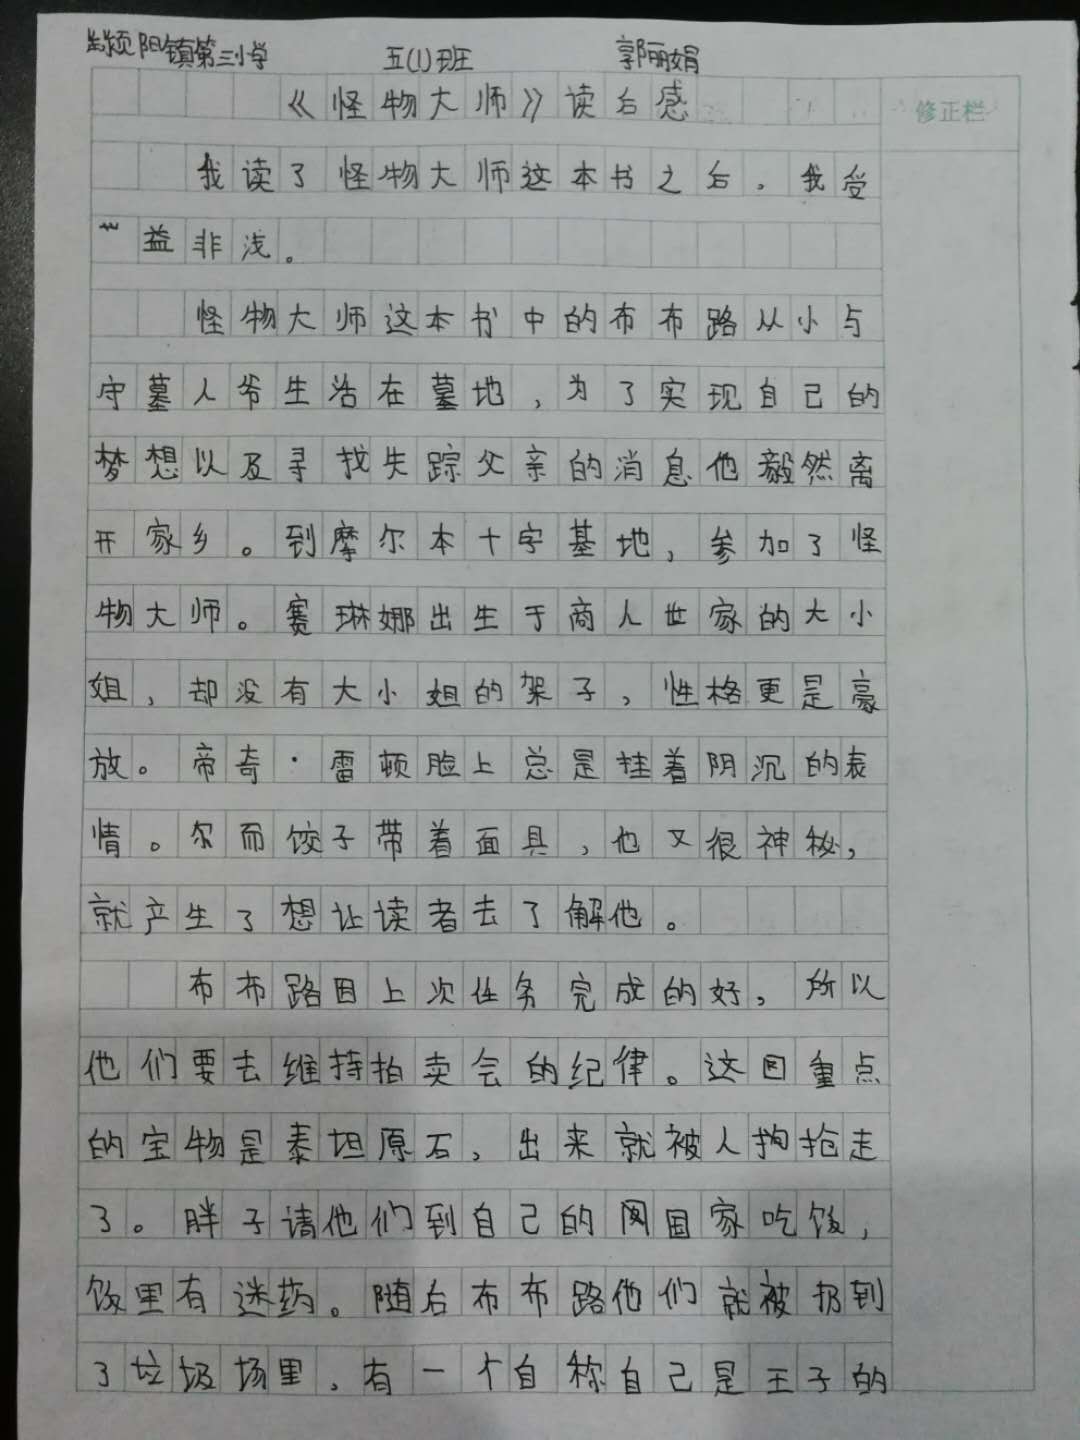 颍阳镇第三小学 五(1)班 郭丽娟
《怪物大师》读后感
修正栏
我读了怪物大师这本书之后，我受
益非浅。
怪物大师这本书中的布布路从小与
守墓人爷生活在墓地，为了实现自己的
梦想以及寻找失踪父亲的消息他毅然离
开家乡。到摩尔本十字基地，参加了怪
物大师。赛琳娜出生于商人世家的大小
姐，却没有大小姐的架子，性格更是豪
放。帝奇·雷顿脸上总是挂着阴沉的表
情。尔而饺子带着面具，也又很神秘，
就产生了想让读者去了解他。
布布路因上次任务完成的好，所以
他们要去维持拍卖会的纪律。这回重点
的宝物是泰坦原石，出来就被人抢走
了。胖子请他们到自己的国家吃饭，
饭里有迷药。随后布布路他们就被扔到
了垃圾场里，有一个自称自己是王子的